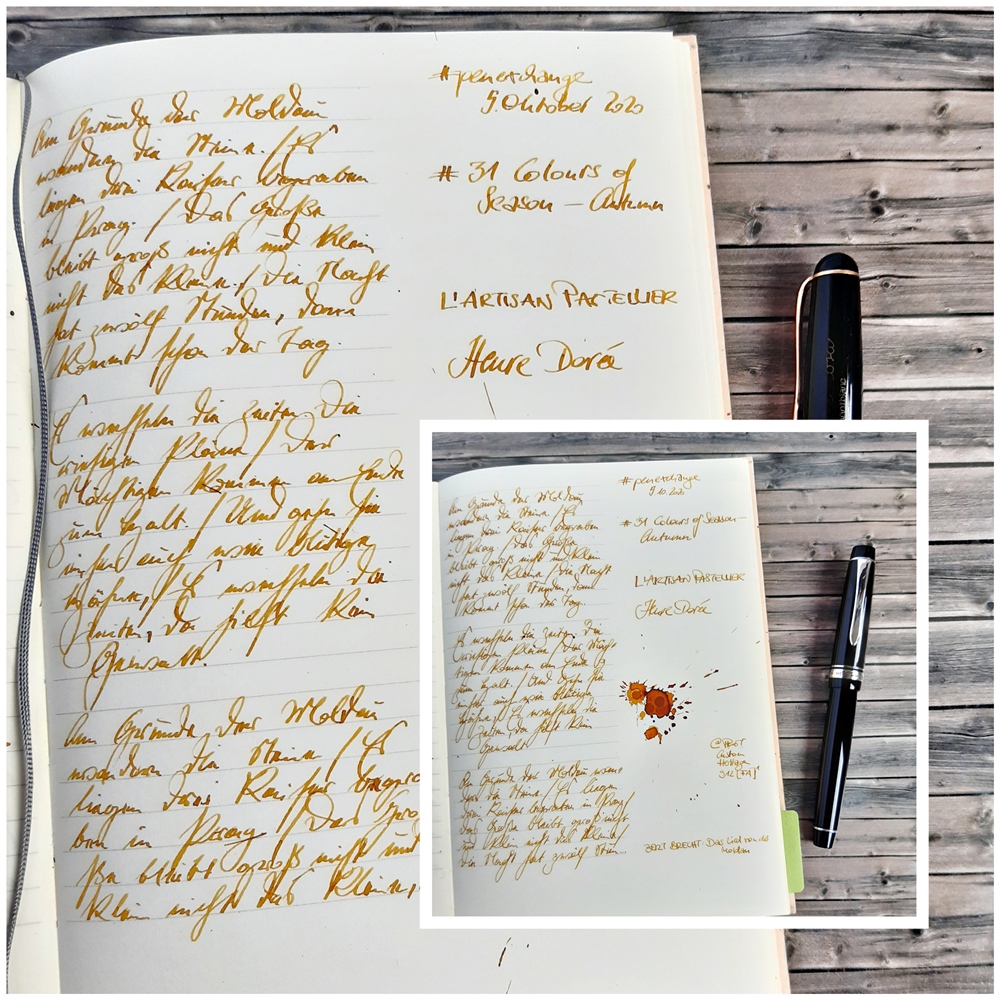 Am Grunde der Moldau
wandern die Steine. / Es
liegen drei Kaiser begraben
in Prag. / Das Große
bleibt groß nicht und klein
nicht das Kleine. / Die Nacht
hat zwölf Stunden, dann
kommt schon der Tag.
Es wechseln die Zeiten. Die
riesigen Pläne / der
Mächtigen kommen am Ende
zum Halt. / Und gehn sie
einher auch wie blutige
Hähne, / Es wechseln die
Zeiten, da hilft kein
Gewalt.
Am Grunde der Moldau
wandern die Steine / Es
liegen drei Kaiser begra
ben in Prag / Das Gro
ße bleibt groß nicht und
klein nicht das Kleine,
#penexchange
9. Oktober 2020
# 31 Colours of
Season – Autumn
L'ARTISAN PASTELLIER
Heure Dorée
Am Grunde der Moldau
wandern die Steine. / Es
liegen drei Kaiser begraben
in Prag. / Das Große
bleibt groß nicht und klein
nicht das Kleine. / Die Nacht
hat zwölf Stunden, dann
kommt schon der Tag.
Es wechseln die Zeiten. Die
riesigen Pläne / der Mäch
tigen kommen am Ende
zum Halt. / Und gehn sie
einher auch wie blutige
Hähne / Es wechseln die
Zeiten, da hilft kein
Gewalt.
Am Grunde der Moldau wan
dern die Steine. / Es liegen
drei Kaiser begraben in Prag /
Das Große bleibt groß nicht
und klein nicht das Kleine /
Die Nacht hat zwölf Stun
#penexchange
9.10.2020
# 31 Colours of Season –
Autumn
L'ARTISAN PASTELLIER
Heure Dorée
Custom
Heritage
BERT BRECHT: Das Lied von der
Moldau